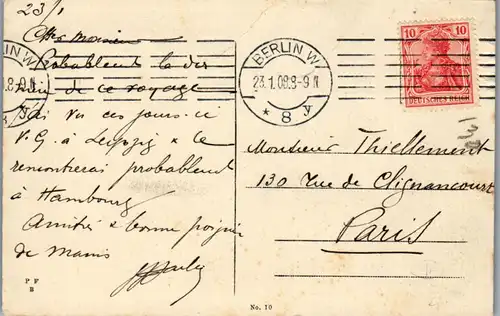 23/1
Cher Monsieur
Probablement la der
nière de ce voyage
J'ai vu ces jours-ci
V. G. à Leipzig & le
rencontrerai probablement
à Hambourg
Amitié & bonne poignée
de mains
P F
B
BERLIN W
23.1.08.8-9N
* 8 y
10 10
DEUTSCHES REICH
Monsieur Thiellement
130 Rue de Clignancourt
Paris
No. 10